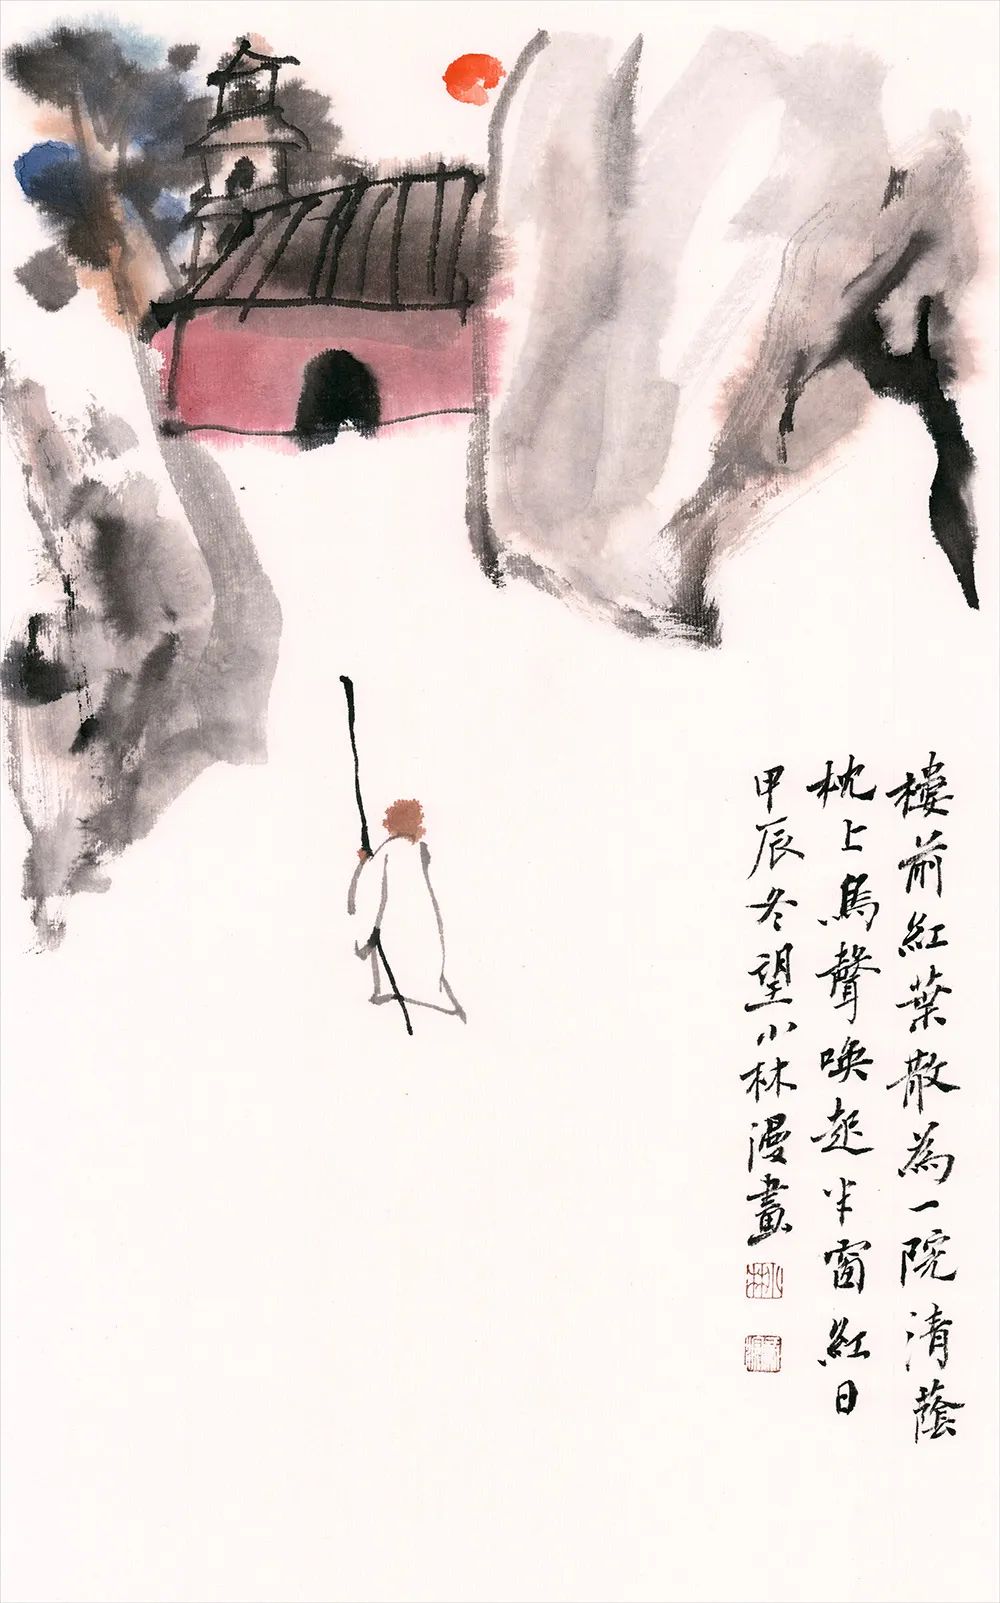 樓前紅葉散為一院清蔭
枕上鳥聲喚起半窗紅日
甲辰冬望小林漫畫
小林